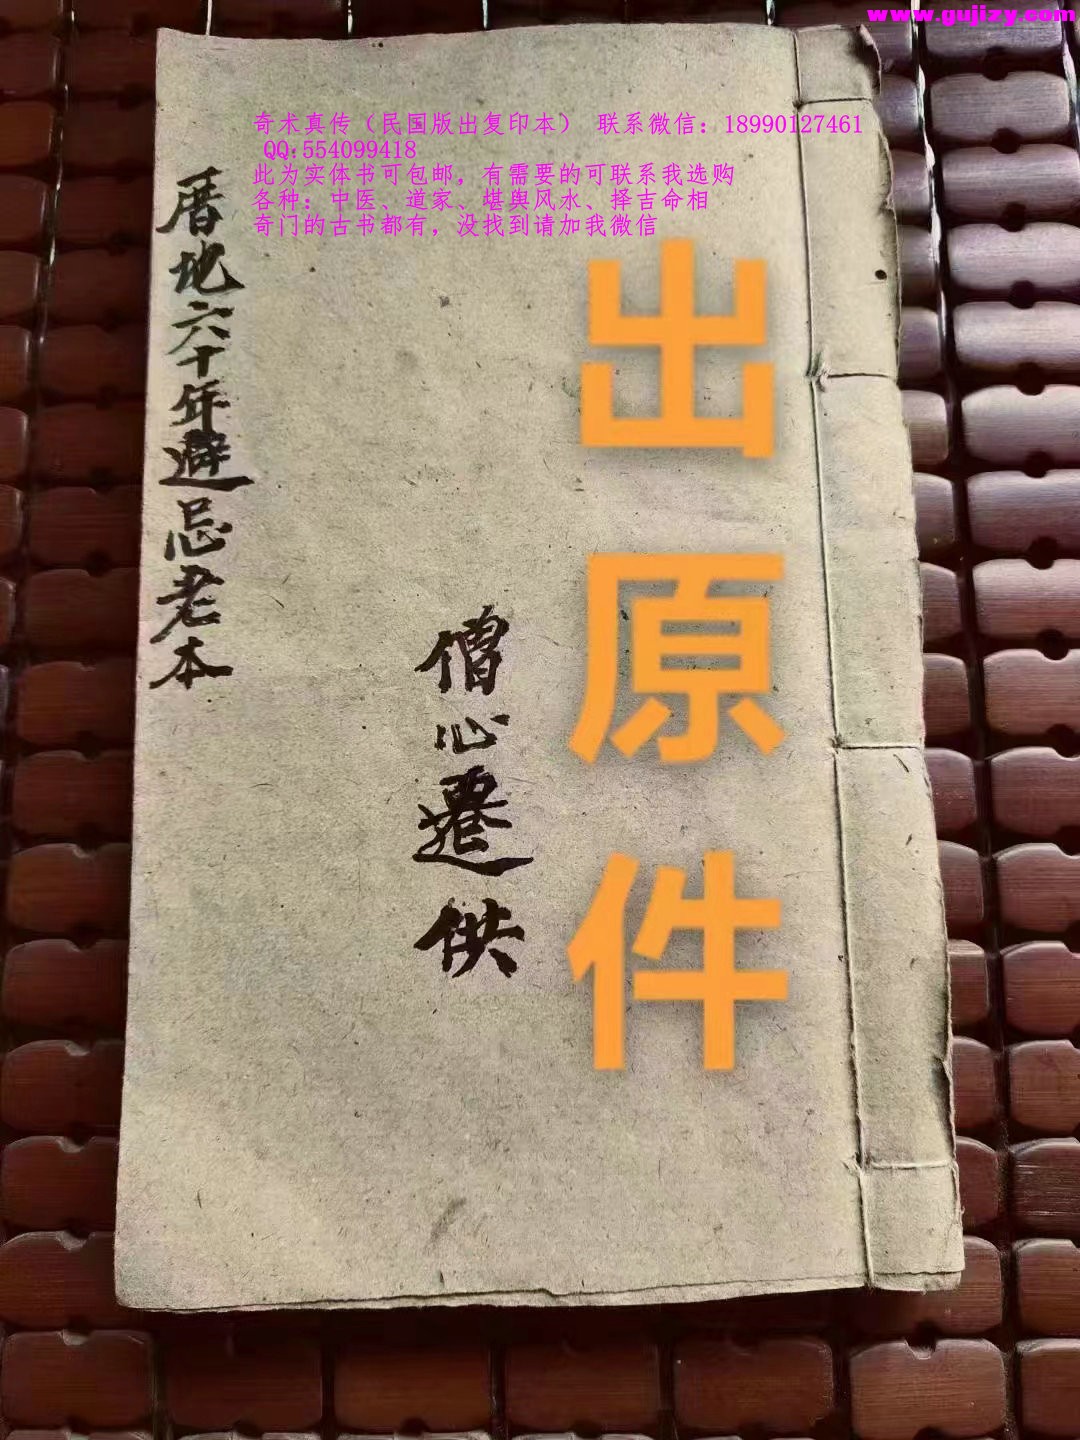 www.gujizy.com
奇术真传（民国版出复印本） 联系微信：18990127461
QQ:554099418
此为实体书可包邮，有需要的可联系我选购
各种：中医、道家、堪舆风水、择吉命相
奇门的古书都有，没找到请加我微信
出原件
僧心遷供
厝地六十年避忌老本